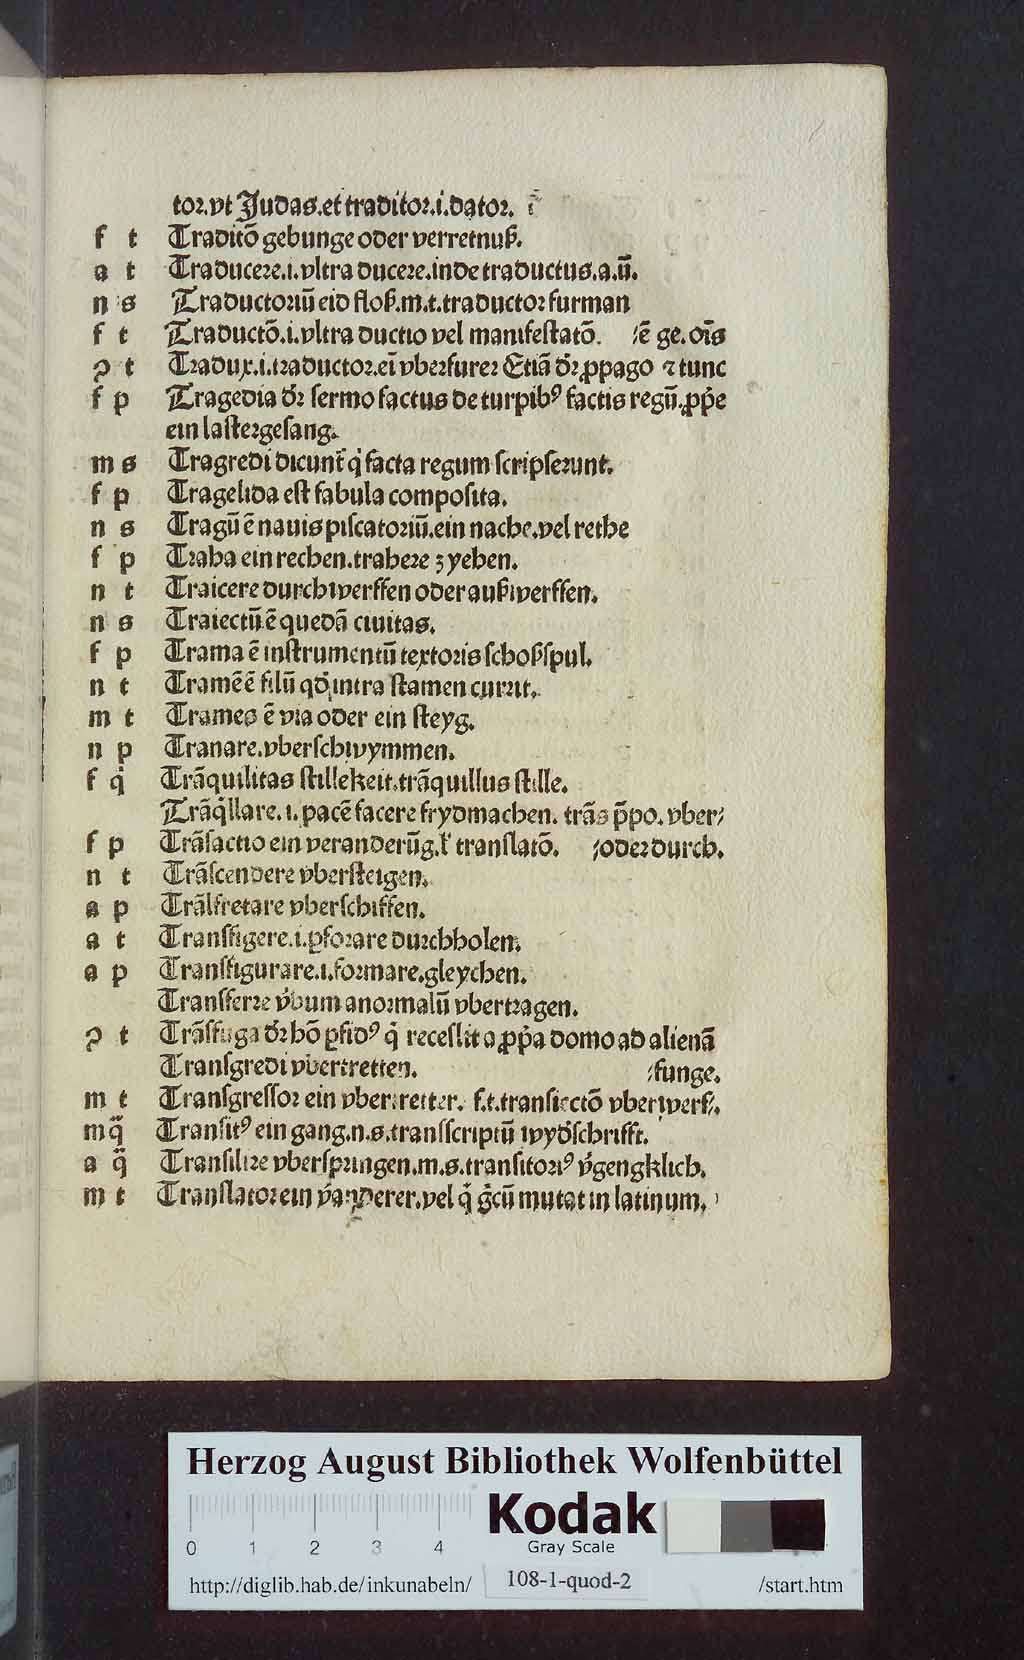 tor.vt Judas.et traditor.i.dator.
f t Traditõ gebunge oder verretnuß.
a t Traducere.i.vltra ducere.inde traductus.a.ũ.
n s Traductoriũ eid floß.m.t.traductor furman
f t Traductõ.i.vltra ductio vel manifestatõ. ⸗ẽ ge. oĩs
ꝯ t Tradux.i.traductor.eĩ vberfurer Etiã dr̃ ꝓpago ⁊ tunc
f p Tragedia dr̃ sermo factus de turpibꝰ factis regũ.ꝓp̃e
ein lastergesang.
m s Tragredi dicunt̃ q̇ facta regum scripserunt.
f p Tragelida est fabula composita.
n s Tragũ ẽ nauis piscatoriũ.ein nache.vel rethe
f p Traha ein rechen.trahere zyehen.
n t Traicere durchwerffen oder außwerffen.
n s Traiectũ ẽ quedã ciuitas.
f p Trama ẽ instrumentũ textoris schoßspul.
n t Tramẽ ẽ filũ qd̓ intra stamen currit.
m t Trames ẽ via oder ein steyg.
n p Tranare.vberschwymmen.
f q̇ Trãquilitas stillekeit.trãquillus stille.
Trãq̇llare.i.pacẽ facere frydmachen. trãs p̃po. vber⸗
f p Trãsactio ein veranderũg.ł translatõ. ⸗oder durch.
n t Trãscendere vbersteigen.
a p Trãsfretare vberschiffen.
a t Transfigere.i.ꝑforare durchholen.
a p Transfigurare.i.formare.gleychen.
Transferre v̓bum anormalũ vbertragen.
ꝯ t Trãsfuga dr̃ hõ ꝑfidꝰ q̇ recessit a ꝓp̃a domo ad alienã
Transgredi vbertretten. ⸗funge.
m t Transgressor ein vbertretter. f.t.transiectõ vberwerf⸗.
m q̃ Transitꝰ ein gang.n.s.transscriptũ wyd̓schrifft.
a q̃ Transilire vberspringen.m.s.transitoriꝰ v̓gengklich.
m t Translator ein v̓anderer.vel q̇ g̃cũ mutat in latinum.
Herzog August Bibliothek Wolfenbüttel
0 1 2 3 4
Kodak
Gray Scale
http://diglib.hab.de/inkunabeln/ 108-1-quod-2 /start.htm